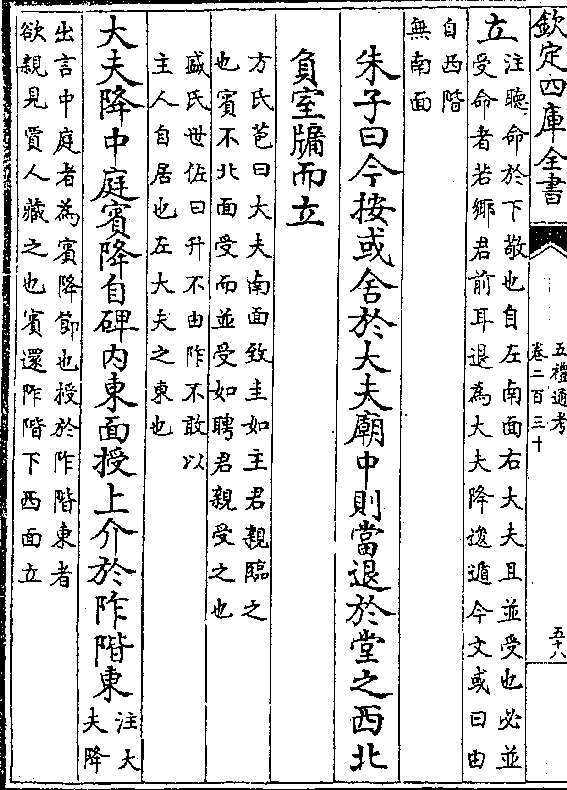 欽定四庫全書
五禮通考
卷二百三十
五十八
立
注聽命於下敬也自左南面右大夫且並受也必並
受命者若鄉君前耳退為大夫降逡遁今文或曰由
自西階
無南面
朱子曰今按或舍於大夫廟中則當退於堂之西北
負室牖而立
方氏苞曰大夫南面致圭如主君親臨之
也賓不北面受而並受如聘君親受之也
盛氏世佐曰升不由阼不敢以
主人自居也左大夫之東也
大夫降中庭賓降自碑內東面授上介於阼階東
注大
夫降
出言中庭者為賓降節也授於阼階東者
欲親見賈人藏之也賓還阼階下西面立